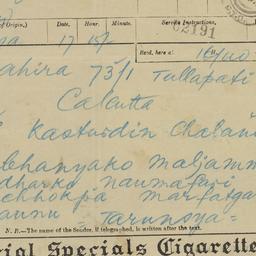 f Origin.) Date, Hour. Minute. Service Instructions,
02191
17 15/-
Recd. here at
ahira 73/1 Tullapati
Calcutta
Kasturdin Chalan
bhanyako maljamm
dharko naumafari
chhokpia marfatga
aunu = Tarunsya =
N. B.—The name of the Sender, if telegraphed, is written after the text.
cial Specials Cigarette